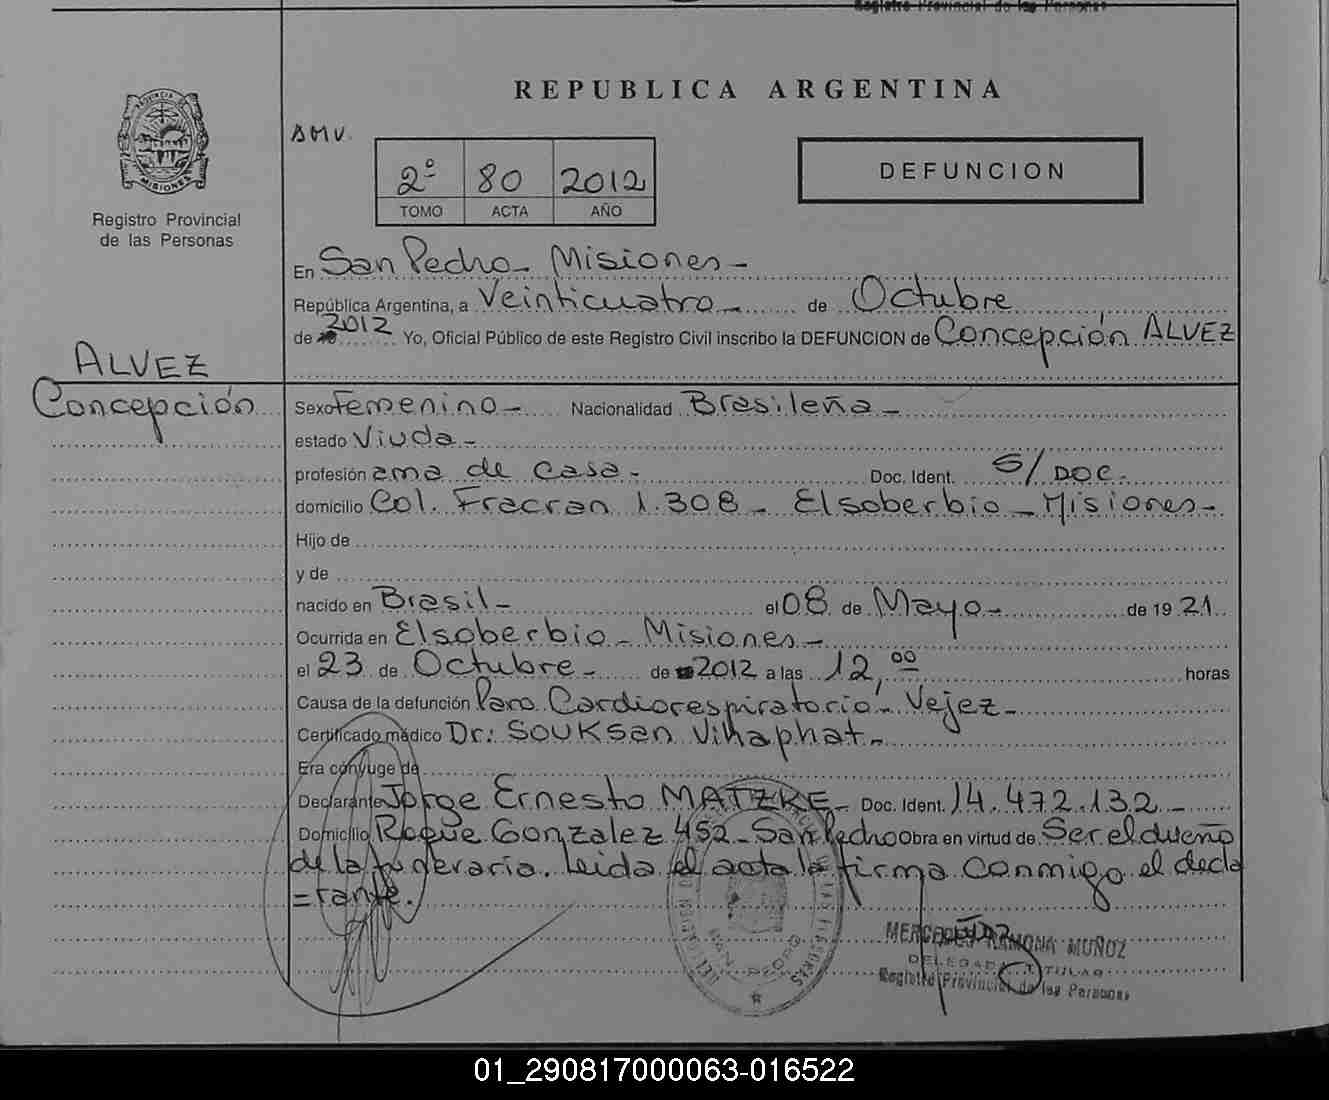 Registro Provincial de las Personas
REPUBLICA ARGENTINA
PROVINCIA DE
MISIONES
Registro Provincial
de las Personas
BMV.
2º 80 2012
TOMO ACTA AÑO
DEFUNCION
En San Pedro - Misiones -
República Argentina, a Veinticuatro - de Octubre
de 2012 Yo, Oficial Público de este Registro Civil inscribo la DEFUNCION de Concepción ALVEZ
ALVEZ
Concepción
Sexo Femenino - Nacionalidad Brasileña -
estado Viuda -
profesión ama de casa - Doc. Ident. S/DOC.
domicilio Col. Fracran 1.308 - Elsoberbio - Misiones -
Hijo de
y de
nacido en Brasil - el 08 de Mayo - de 19 21
Ocurrida en Elsoberbio - Misiones -
el 23 de Octubre - de 2012 a las 12,00 horas
Causa de la defunción Paro Cardiorespiratorio - Vejez -
Certificado médico Dr: Souksan Vihaphat -
Era cónyuge de
Declarante Jorge Ernesto MATZKE - Doc. Ident. 14.472.132 -
Domicilio Roque Gonzalez 452 - San Pedro Obra en virtud de Ser el dueño
de la funeraria. Leida el acta la firma conmigo el decla
=rante.
SAN PEDRO
MERCEDES RAMONA MUÑOZ
DELEGADA TITULAR
Registro Provincial de las Personas
01_290817000063-016522